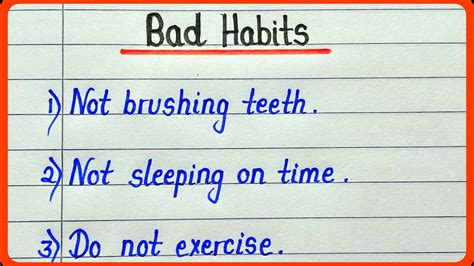 Bad Habits
1) Not brushing teeth.
2) Not sleeping on time.
3) Do not exercise.